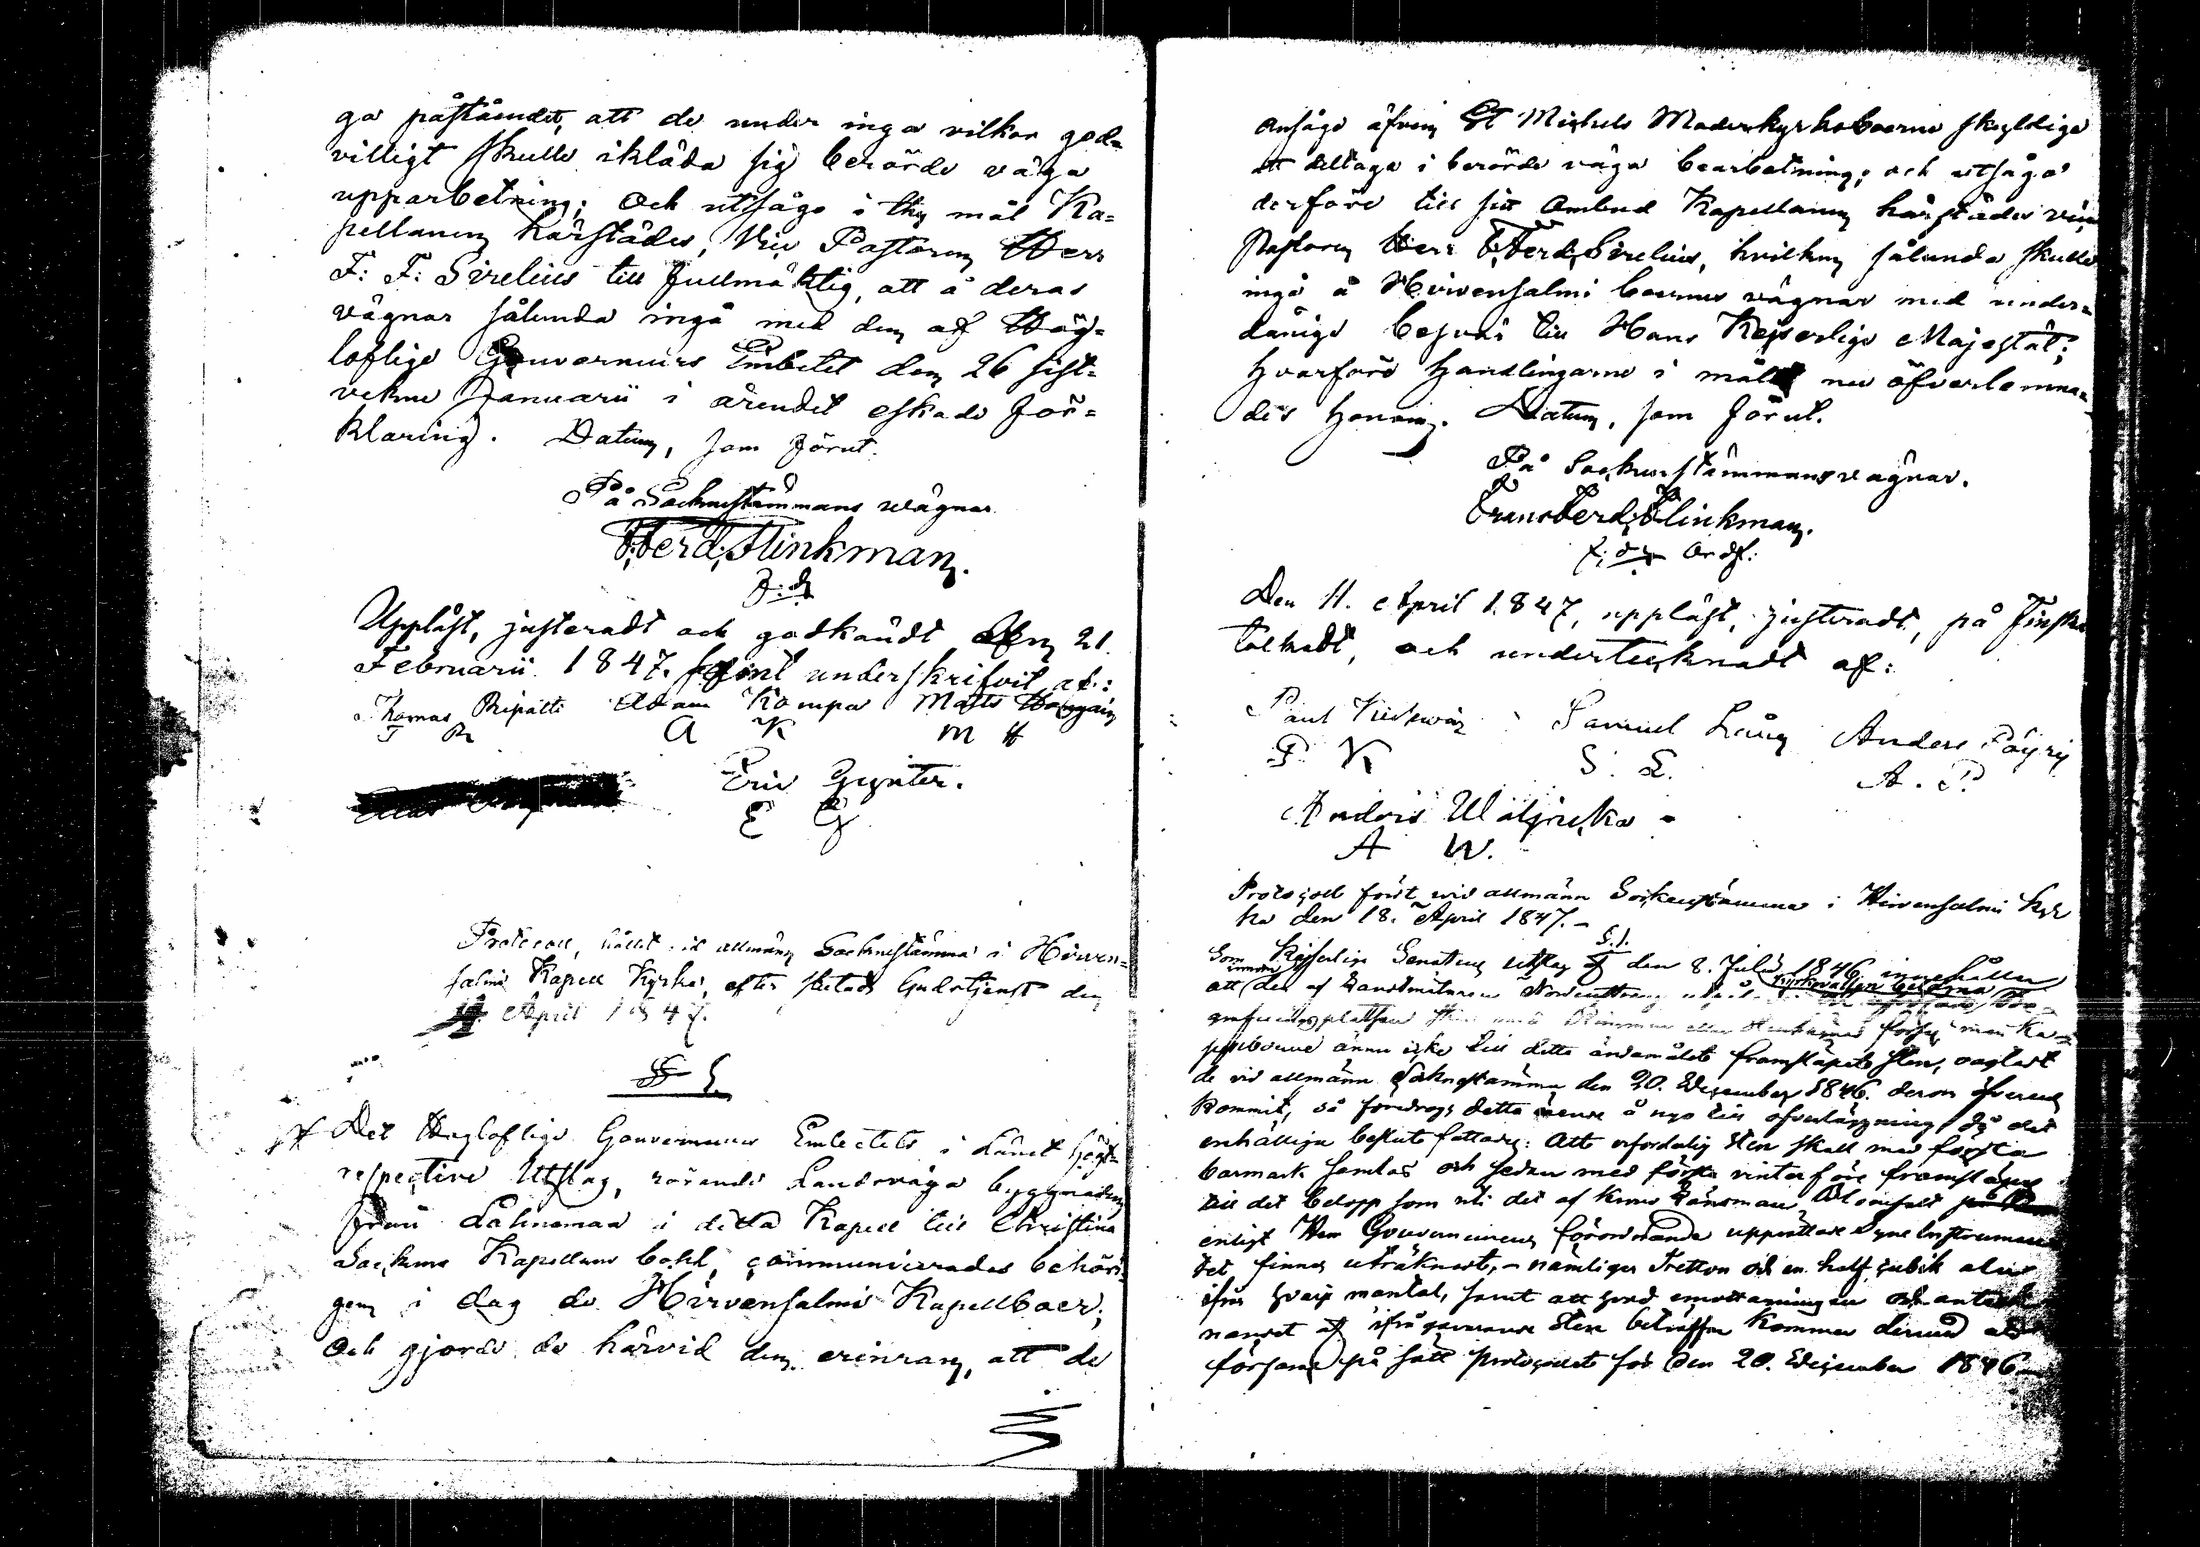 ga påståendet, att de under inga vilkor god-
villigt skulle ikläda sig berörde väga
upparbetning; och utsågo i thy mål Ka-
pellanen härstädes, Vice Pastoren Herr
F: F: Sirelius till Fullmäktig, att å deras
vägnar sålunda ingå med den af Hög-
loflige Gouverneurs Embetet den 26 sist-
vekne Januarii i ärendet äskade För-
klaring. Datum, som förut.
På Socknestämmans wägnar
F. Ferd. Flinkman.
Uppläst, justeradt och godkändt den 21.
Februarii 1847. samt underskrifvit af:
Thomas Ripatti Adam Kompa Matts
T R A K M H
Eric Gynter.
E G
Protocoll, hållit vid allmän Socknestämma i Hirven-
salmi Kapell Kyrka, efter slutad Gudstjenst den
April 1847.
§ 1.
Det Högloflige Gouverneurs Embetets i Länet högt-
respective Utslag, rörande Landsväga byggnaden
från Lahnemaa i detta Kapell till Christina
Sockens Kapellans bohl, communicerades behöri-
gen i dag de Hirvensalmi Kapellboer;
och gjorde de härvid den erinran, att de
ansågo äfven St Michels Moderkyrkoboerne skyldige
att deltaga i berörde väga bearbetning; och utsågo
derföre till sitt Ombud Kapellanen härstädes vice
Pastoren Herr F. Ferd. Sirelius, hvilken sålunda skulle
ingå å Hirvensalmi boernes vägnar med under-
dånige besvär till Hans Kejserlige Majestät;
hvarföre Handlingarne i målet nu öfverlemna-
des honom. Datum, som förut.
På Sockenstämmans vägnar.
Frans Ferd. Flinkman.
Ordf:
Den 11. April 1847, uppläst, justeradt, på Finska
tolkadt, och undertecknadt af:
Paul Samuel Anders Pöyry
P K S. L. A. P.
Anders
A W.
Protocoll fördt wid allmän Sockenstämma i Hirvensalmi kyr
ka den 18. April 1847.-
§.1.
Som Kejserliga Senatens utslag af den 8. Julii 1846 innehåller
att den af Landtmätaren
grafningsplatsen förses, men Ka-
pellboerne ännu icke till detta ändamålet framsläpat sten, oagtadt
de vid allmänn Socknestämma den 20. December 1846. derom öfverens
kommit, så föredrogs detta ämne å nyo till öfverläggning då det
enhälliga beslut fattades: Att erforderlig sten skall med första
barmark samlas och sedan med första vinterföre framsläpas
till det belopp som uti det af Krono Länsman
enligt Herr Gouverneurens förordnande upprättade Syne Instrumen
tet finnes uträknadt,- nämligen Tretton och en half cubik alnar
ifrån hvarje mantal, samt att hvad emottagningen och anteck
nandet af ifrågavarande Sten beträffar kommer dermed att
förfaras på sätt protocollet för den 20. December 1846